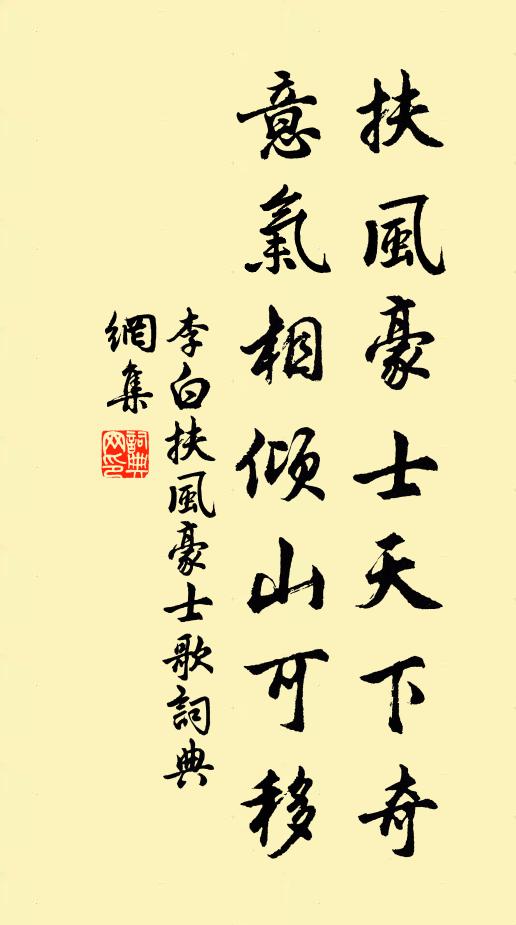 扶風豪士天下奇
意氣相傾山可移
李白扶風豪士歌詞典
網集
詞典
网印